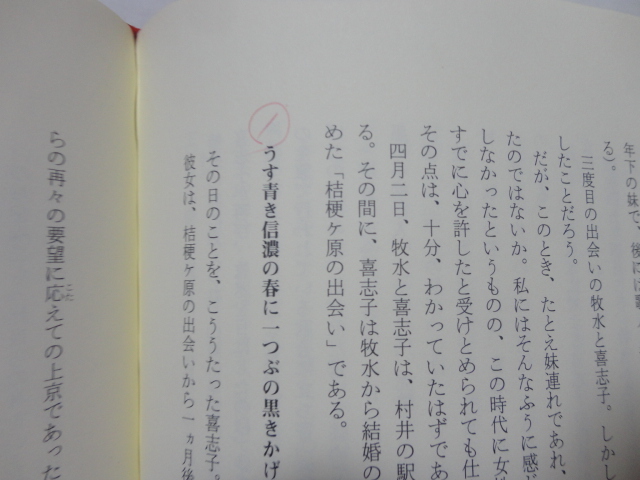 年下の妹で、後には
る）。
三度目の出会いの牧水と喜志子。しかし
したことだろう。
だが、このとき、たとえ妹連れであれ、
たのではないか。私にはそんなふうに感じ
しなかったというものの、この時代に女性
すでに心を許したと受けとめられても仕
その点は、十分、わかっていたはずであ
四月二日、牧水と喜志子は、村井の駅
る。その間に、喜志子は牧水から結婚の
めた「桔梗ヶ原の出会い」である。
うす青き信濃の春に一つぶの黒きかげ
その日のことを、こううたった喜志子。
彼女は、桔梗ヶ原の出会いから一ヵ月後
らの再々の要望に応えての上京であった
こた